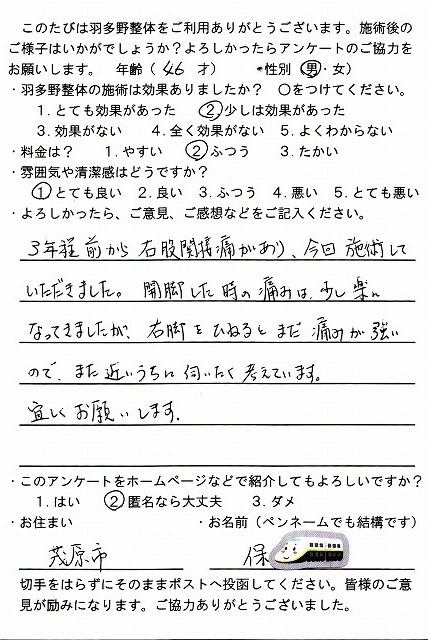 このたびは羽多野整体をご利用ありがとうございます。施術後の
ご様子はいかがでしょうか？よろしかったらアンケートのご協力を
お願いします。 年齢（ 46 才） ・性別（男・女）
・羽多野整体の施術は効果ありましたか？ ○をつけてください。
1. とても効果があった ②少しは効果があった
3. 効果がない 4. 全く効果がない 5. よくわからない
・料金は？ 1. やすい ②ふつう 3. たかい
・雰囲気や清潔感はどうですか？
①とても良い 2. 良い 3. ふつう 4. 悪い 5. とても悪い
・よろしかったら、ご意見、ご感想などをご記入ください。
3年程前から右股関接痛があり、今回施術して
いただきました。 開脚した時の痛みは、少し楽に
なってきましたが、右脚をひねるとまだ痛みが強い
ので、また近いうちに伺いたく考えています。
宜しくお願いします。
・このアンケートをホームページなどで紹介してもよろしいですか？
1. はい ②匿名なら大丈夫 3. ダメ
・お住まい ・お名前（ペンネームでも結構です）
茂原市 保
切手をはらずにそのままポストへ投函してください。皆様のご意
見が励みになります。ご協力ありがとうございました。